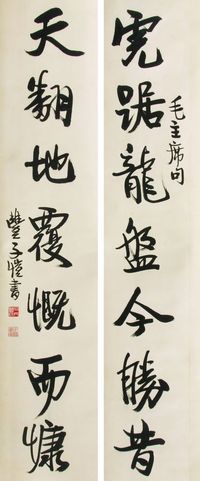 毛主席句
虎踞龍盤今勝昔
天翻地覆慨而慷
豐子愷書